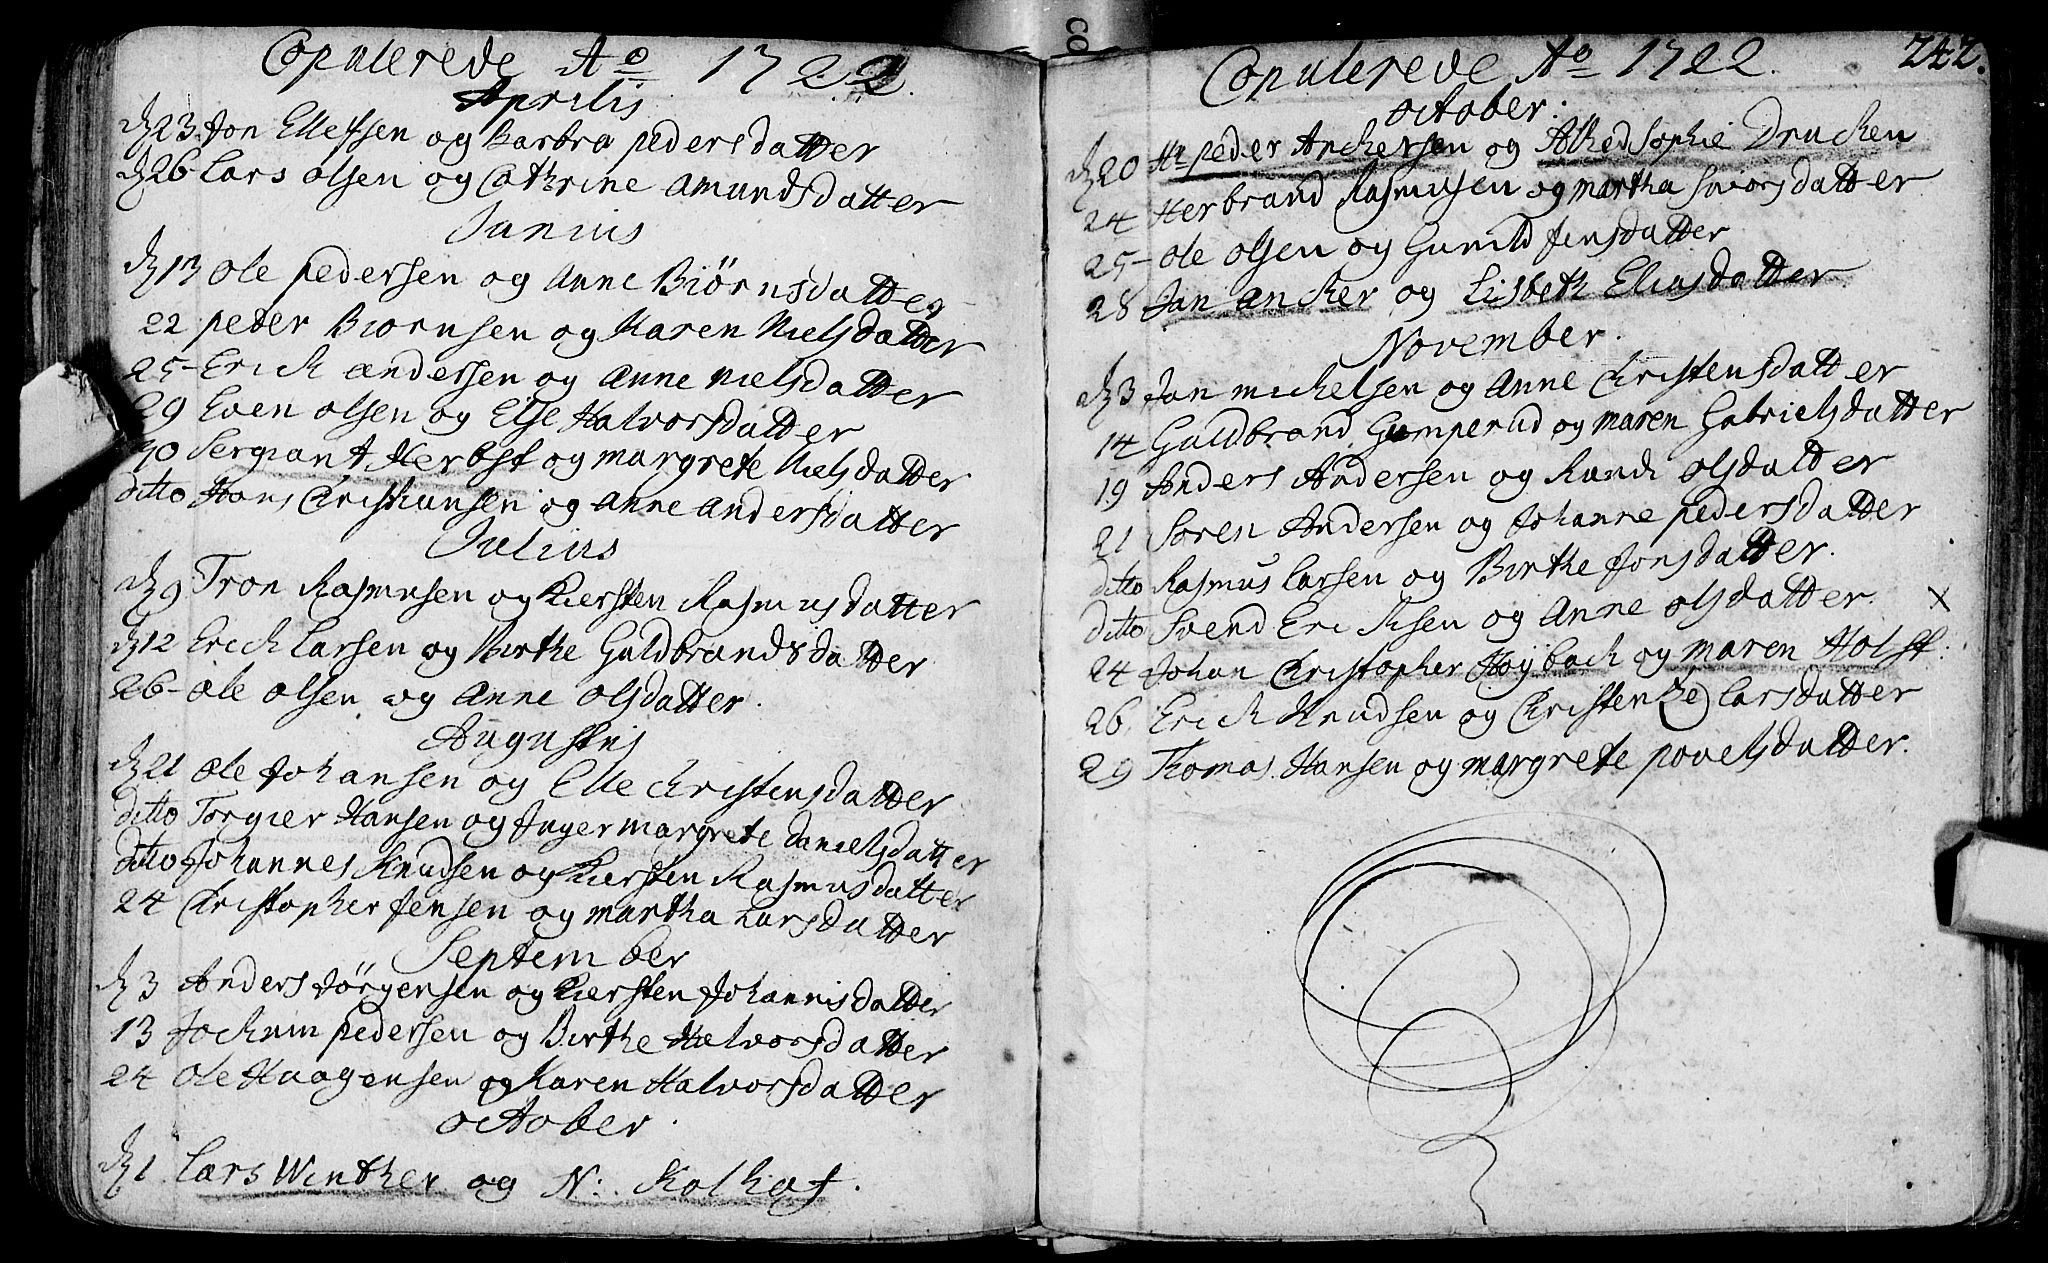 Copulerede Ao 1722.
Aprilis
d 23. Jon Ellefsen og Barbra pedersdatter
d 26 Lars olsen og Cathrine Amundsdatter
Junius
d 13 Ole pedersen og Anne Biørnsdatter
22 peder Biornsen og Karen Nielsdatter
25 Erick Andersen og Anne Nielsdatter
29 Even olsen og Else Halvorsdatter
30 Sergiant Herbst og margrete Nielsdatter
ditto Hans Christiansen og Anne Andersdatter
Julius
d 9 Tron Rasmusen og Kiersten Rasmusdatter
d 12 Erich Larsen og Birthe Guldbrandsdatter
26 ole olsen og Anne olsdatter.
Augustus
d 21 ole Johansen og Elle Christensdatter
ditto Torgier Hansen og Inger margrete danielsdatter
ditto Johannes Knudsen og Kiersten Rasmusdatter
24 Christopher Jensen og martha Larsdatter
September
d 3 Anders Jörgensen og Kiersten Johannisdatter
13 Jochum pedersen og Birthe Halvorsdatter
24 Ole Haagensen og Karen Halvorsdatter
october.
d 1 Lars Winther og N: Kolhof.
Copulerede Ao 1722. 242.
october.
d 20 Hr peder Anchersen og Alhed Sophie Drucken
24 Herbrand Rasmusen og martha Sivorsdatter
25 Ole olsen og Gunild Jensdatter
28 Jan Ancker og Lisbeth Eliasdatter.
November.
d 3 Jan michelsen og Anne Christensdatter
14 Guldbrand Gumperud og maren Gabrielsdatter
19 Anders Andersen og Randi olsdatter
21 Soren Andersen og Johanne pedersdatter
ditto Rasmus Larsen og Birthe Jonsdatter.
ditto Svend Ericksen og Anne olsdatter. X
24 Johan Christopher Høybach og maren Holst.
26. Erick Knudsen og Christen(ze) Larsdatter
29 Thomas Hansen og margrete povelsdatter.